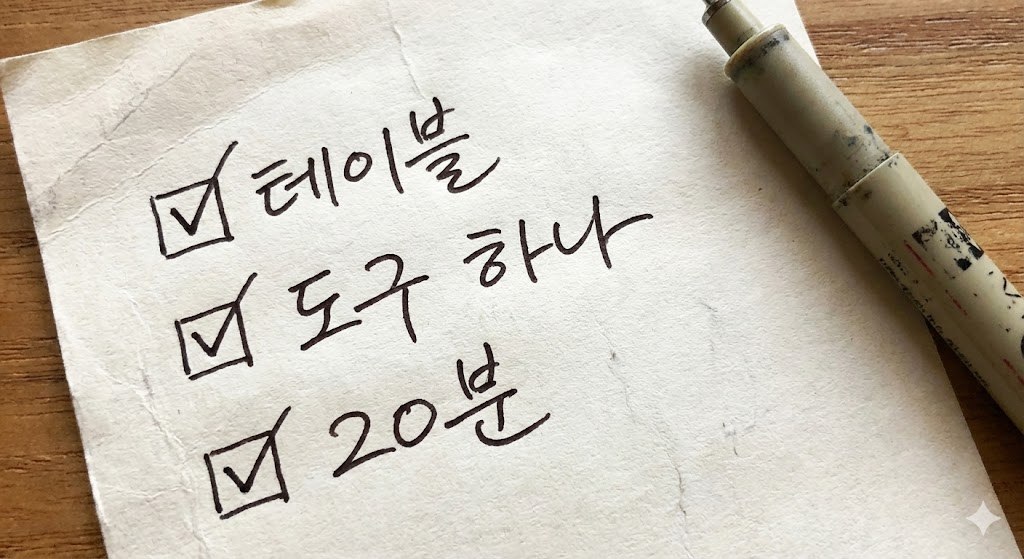 테이블
도구 하나
20분